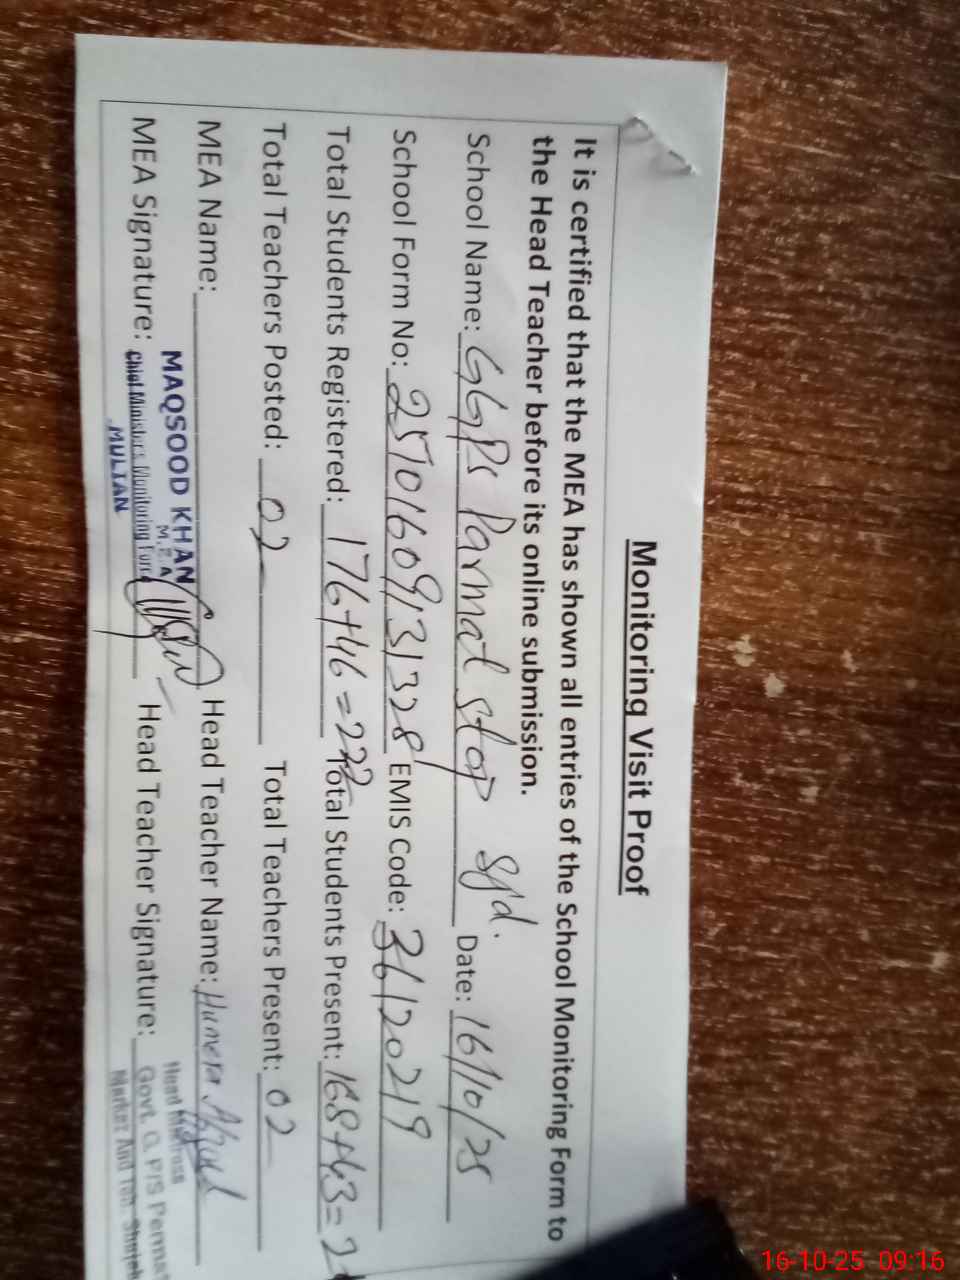 Monitoring Visit Proof
It is certified that the MEA has shown all entries of the School Monitoring Form to
the Head Teacher before its online submission.
School Name: GGPS Parmat stop Sjd. Date: 16/10/25
School Form No: 25701609131328 EMIS Code: 36120219
Total Students Registered: 176+46=222 Total Students Present: 168+43=2
Total Teachers Posted: 02 Total Teachers Present: 02
MEA Name: Head Teacher Name: Humera Afzal
MAQSOOD KHAN
M.E.A
MEA Signature: Chief Minister's Monitoring Force Head Teacher Signature:
MULTAN
Head Mistress
Govt. G. P/S Permat
Market And Teh. Shujab
16-10-25 09:16